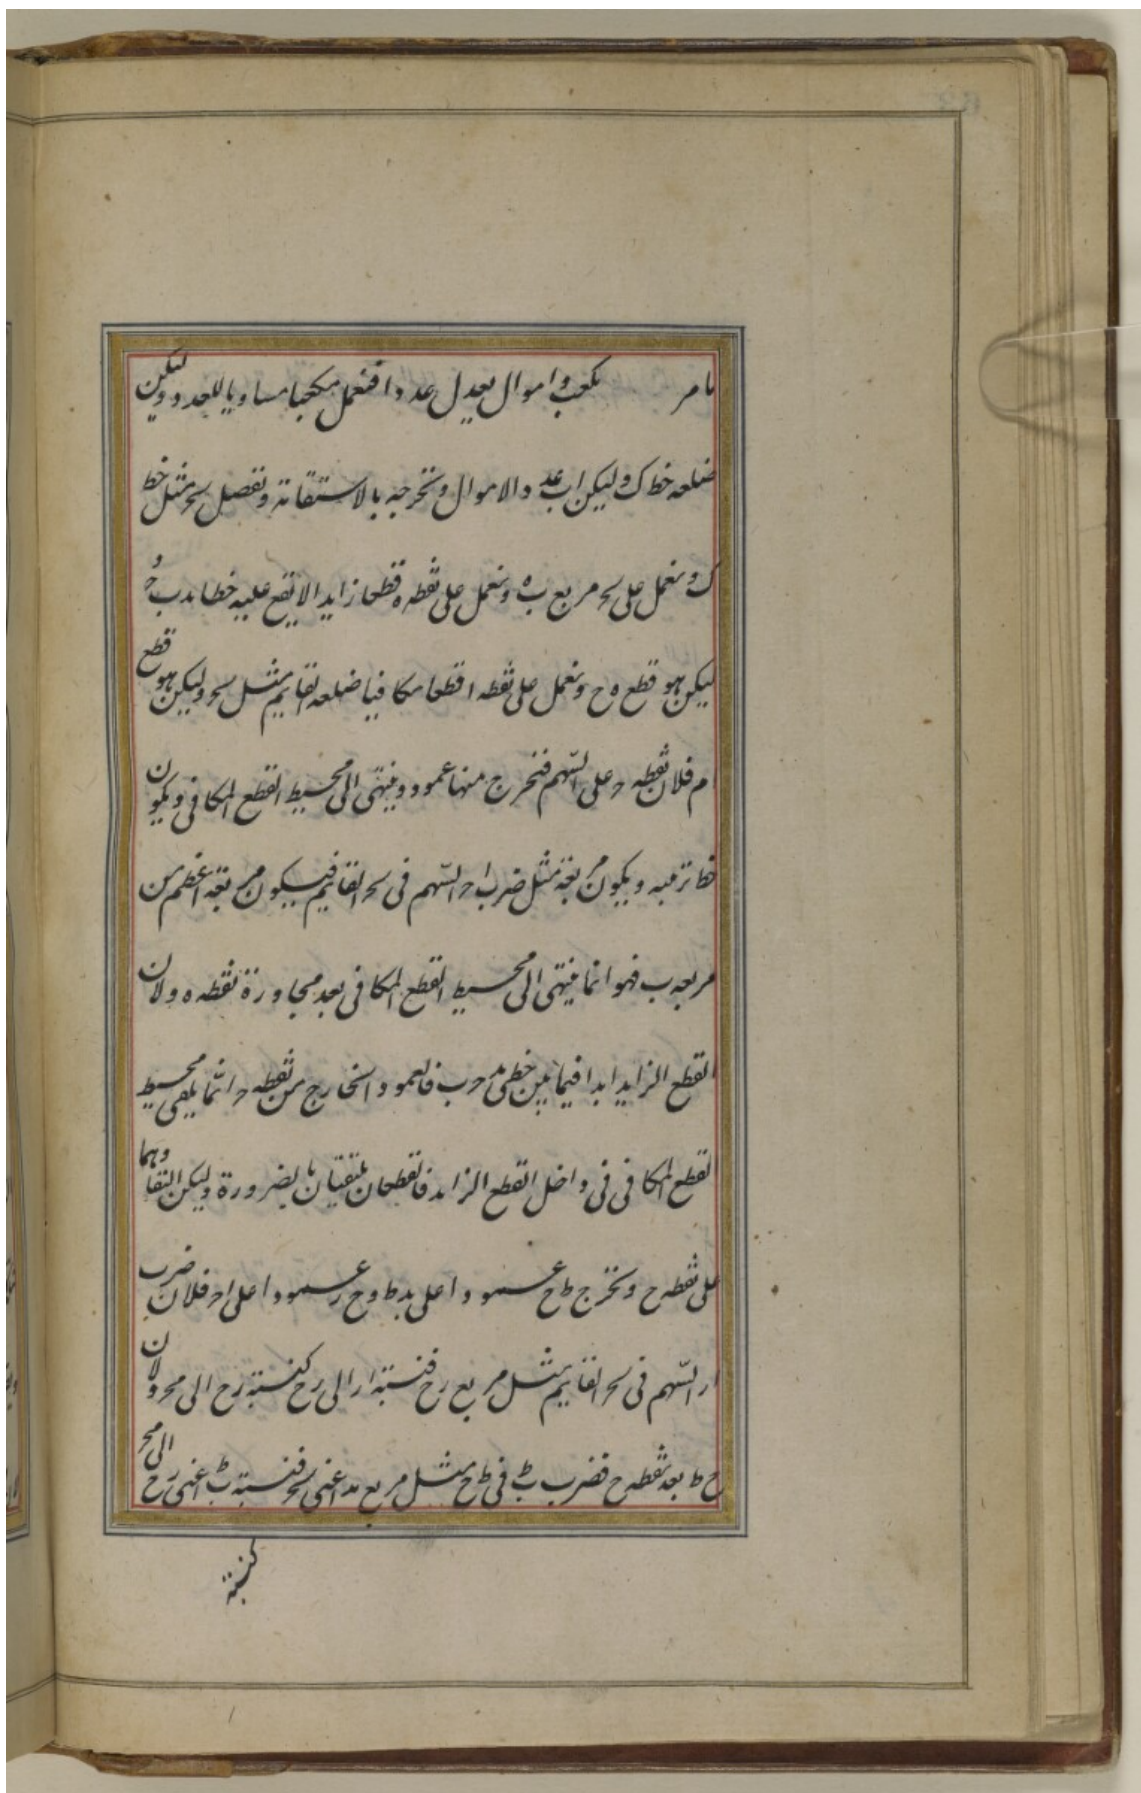 مامر مكعب واموال يعدل عددا فنعمل مكعبا مساويا للعدد وليكن
ضلعه خط ك وليكن اب عدد الاموال ونخرجه بالاستقامة ونفصل بحر مثل خط
ك ونعمل على بحر مربع ب ه ونعمل على نقطه ه قطعا زايد الايقع عليه خطا بد ب ح و
ليكن هو قطع ه ح ونعمل على نقطه ا قطعا مكافيا ضلعه القايم مثل بحر وليكن هو قطع
ام فلان نقطه ح على السهم فنخرج منها عمود وينتهى الى محيط القطع المكافى ويكون
خط ترتيبه ويكون مربعة مثل ضرب اح السهم فى بحر القايم فيكون مربعة اعظم من
مربع ه ب فهو انما ينتهى الى محيط القطع المكافى بعد مجاورة نقطه ه ولان
القطع الزايد ابدا فيما بين خطى بد حرب فالعمود الخارج من نقطه ح انما يلقى محيط
القطع المكافى فى داخل القطع الزايد فالقطعان يلتقيان بالضرورة وليكن التقاوهما
على نقطه ح ونخرج ط ح عمودا على بد ط و ح ر عمودا على اح فلان ضرب
ار السهم فى بحر القايم مثل مربع رح فنسبة ار الى رح كنسبة رح الى بحر ولان
ح ط بعد نقطه ح فضرب بط فى ط ح مثل مربع بد اعنى بحر فنسبة بط اعنى رح الى بحر
كنسبة